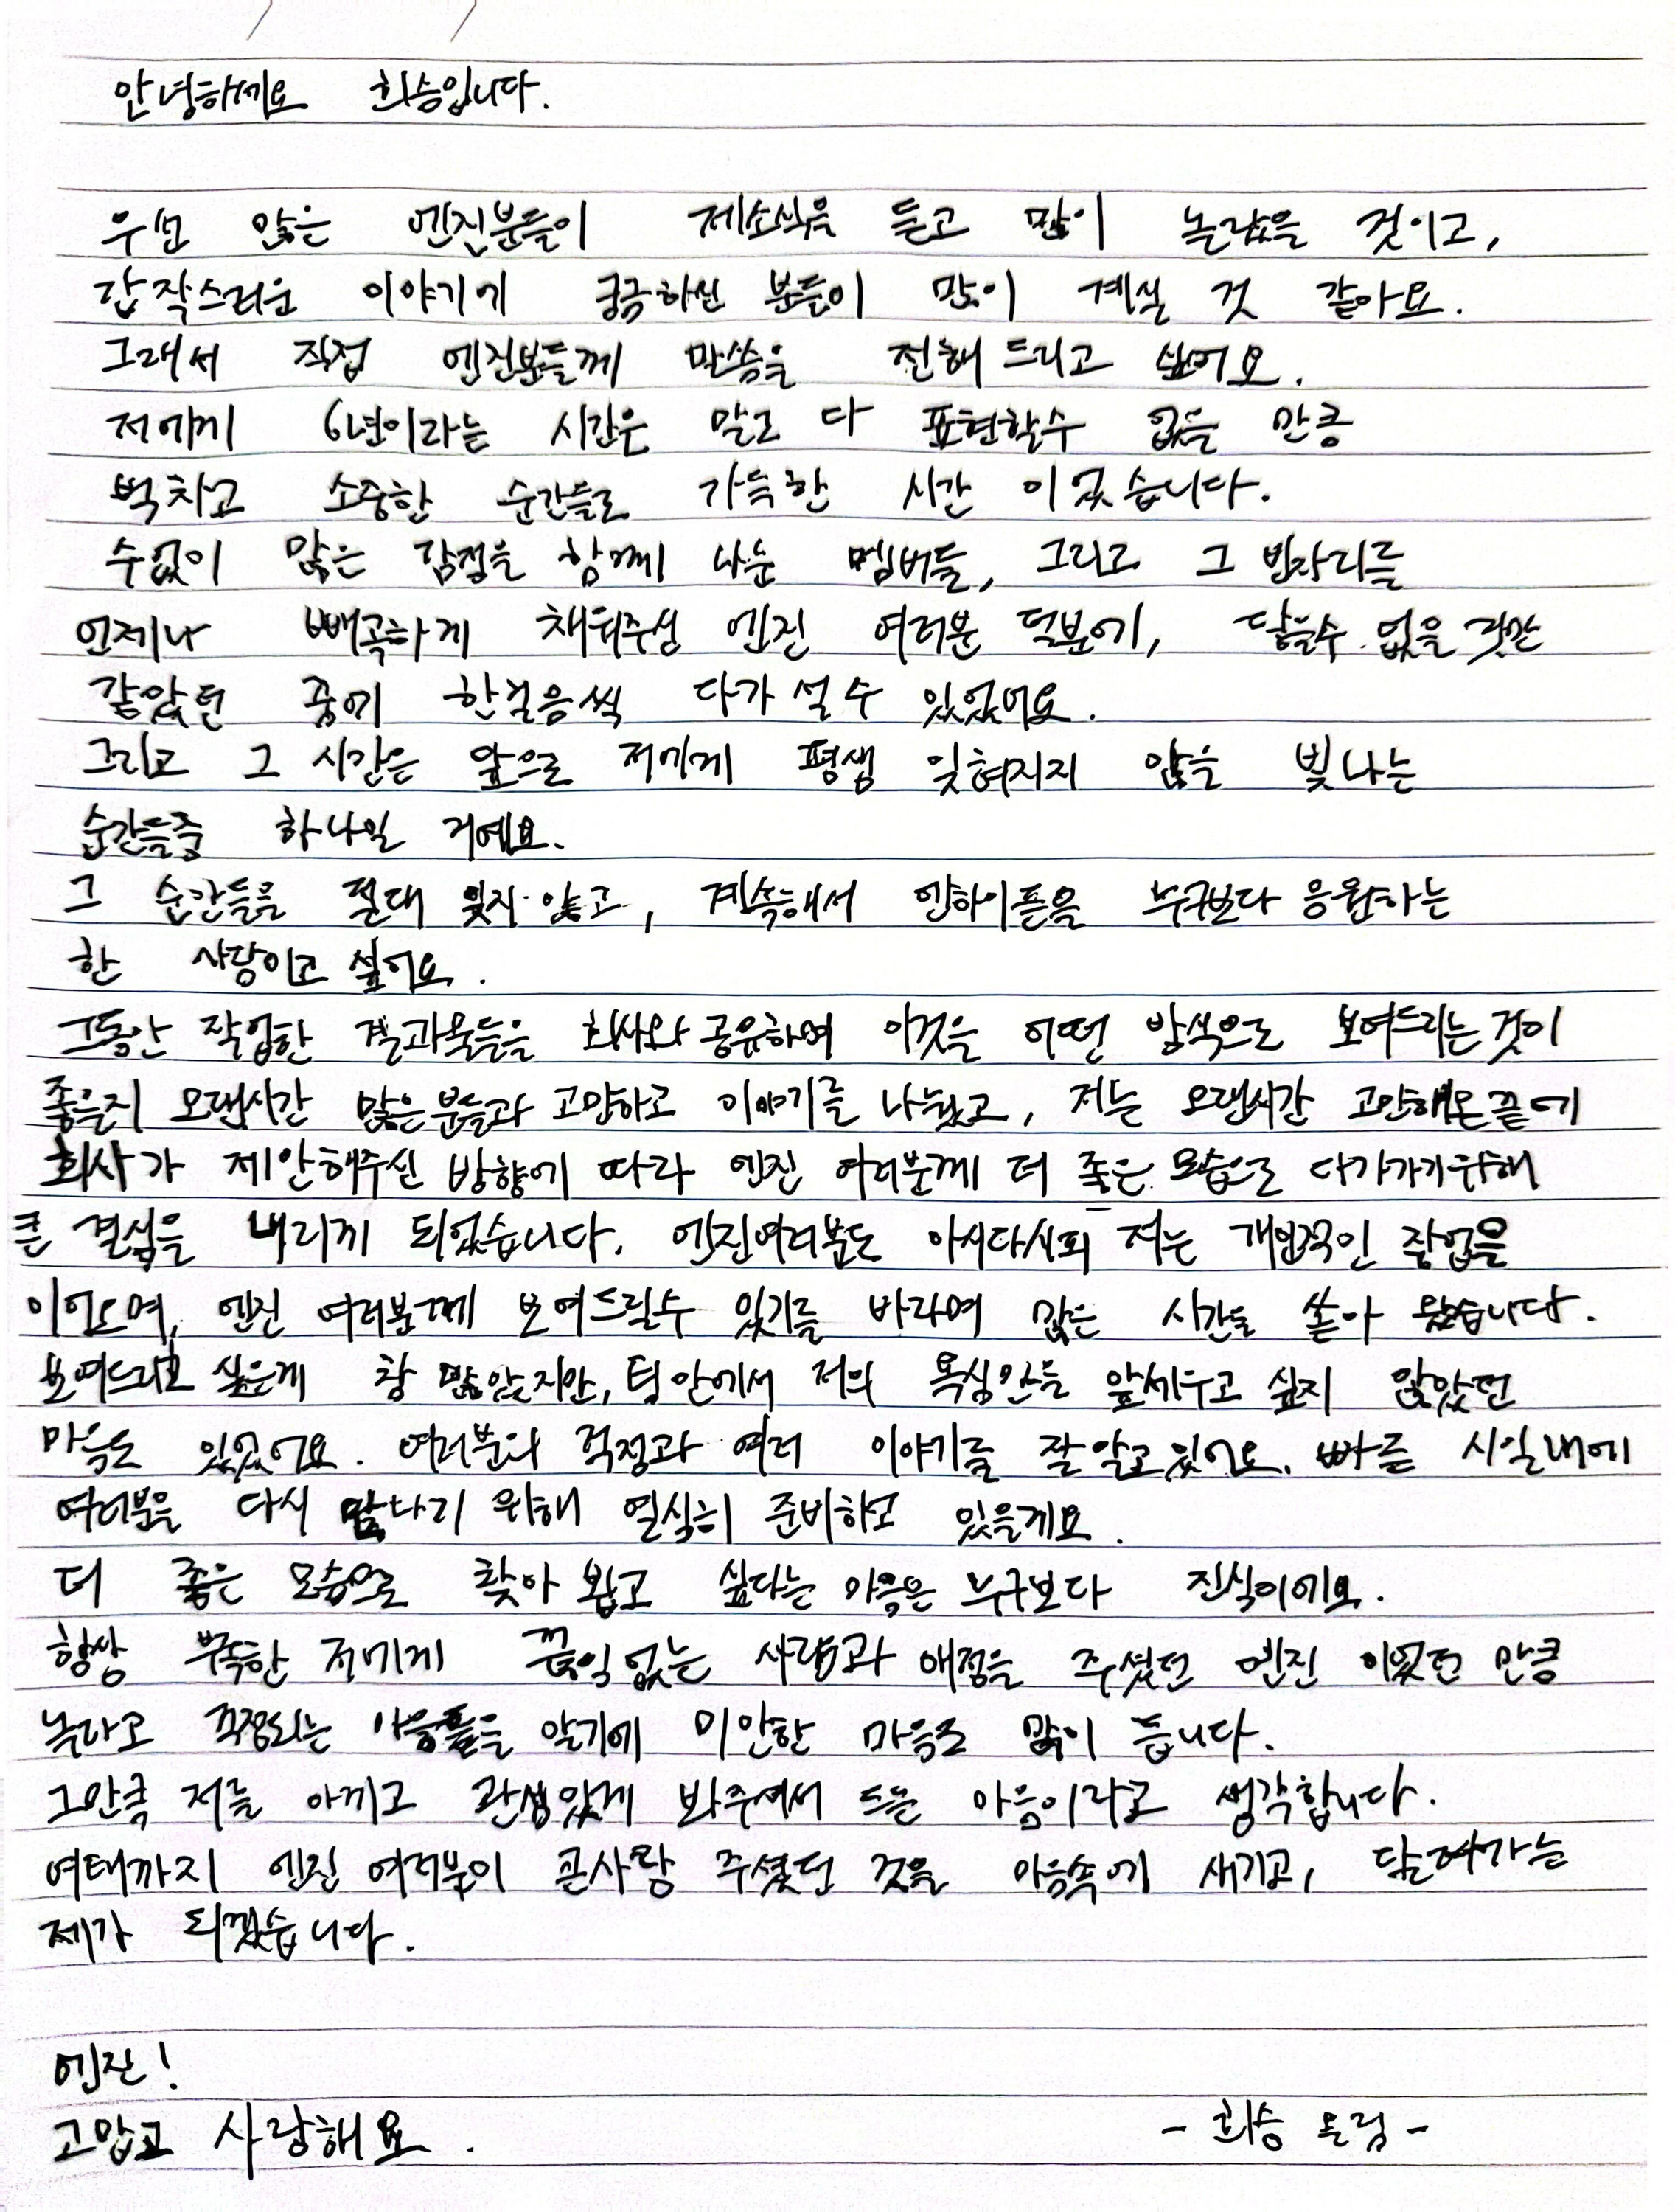 안녕하세요 희승입니다.
우선 많은 엔진분들이 제소식을 듣고 많이 놀랐을 것이고,
갑작스러운 이야기에 궁금하신 분들이 많이 계실 것 같아요.
그래서 직접 엔진분들께 말씀을 전해 드리고 싶어요.
저에게 6년이라는 시간은 말로 다 표현할수 없을 만큼
벅차고 소중한 순간들로 가득한 시간 이었습니다.
수없이 많은 감정을 함께 나눈 멤버들, 그리고 그 빈자리를
언제나 빼곡하게 채워주신 엔진 여러분 덕분에, 닿을수 없을 것만
같았던 꿈에 한걸음씩 다가 설 수 있었어요.
그리고 그 시간은 앞으로 저에게 평생 잊혀지지 않을 빛나는
순간들중 하나일 거예요.
그 순간들을 절대 잊지 않고, 계속해서 엔하이픈을 누구보다 응원하는
한 사람이고 싶어요.
그동안 작업한 결과물들을 회사와 공유하며 이것을 어떤 방식으로 보여드리는것이
좋을지 오랜시간 많은분들과 고민하고 이야기를 나눴고, 저는 오랜시간 고민해온끝에
회사가 제안해주신 방향에 따라 엔진 여러분께 더 좋은 모습으로 다가가기위해
큰 결심을 내리게 되었습니다. 엔진여러분도 아시다시피 저는 개인적인 작업을
이어오며, 엔진 여러분께 보여드릴수 있기를 바라며 많은 시간을 쏟아 왔습니다.
보여드리고 싶은게 참 많았지만, 팀 안에서 저의 욕심만을 앞세우고 싶지 않았던
마음도 있었어요. 여러분의 걱정과 여러 이야기를 잘알고있어요. 빠른 시일내에
여러분을 다시 만나기 위해 열심히 준비하고 있을게요.
더 좋은 모습으로 찾아 뵙고 싶다는 마음은 누구보다 진심이에요.
항상 부족한 저에게 끊임없는 사랑과 애정을 주셨던 엔진 이었던 만큼
놀라고 걱정되는 마음들을 알기에 미안한 마음도 많이 듭니다.
그만큼 저를 아끼고 관심있게 봐주셔서 드는 마음이라고 생각합니다.
여태까지 엔진 여러분이 큰사랑 주셨던 것을 마음속에 새기고, 달려가는
제가 되겠습니다.
엔진!
고맙고 사랑해요.
- 희승 올림 -